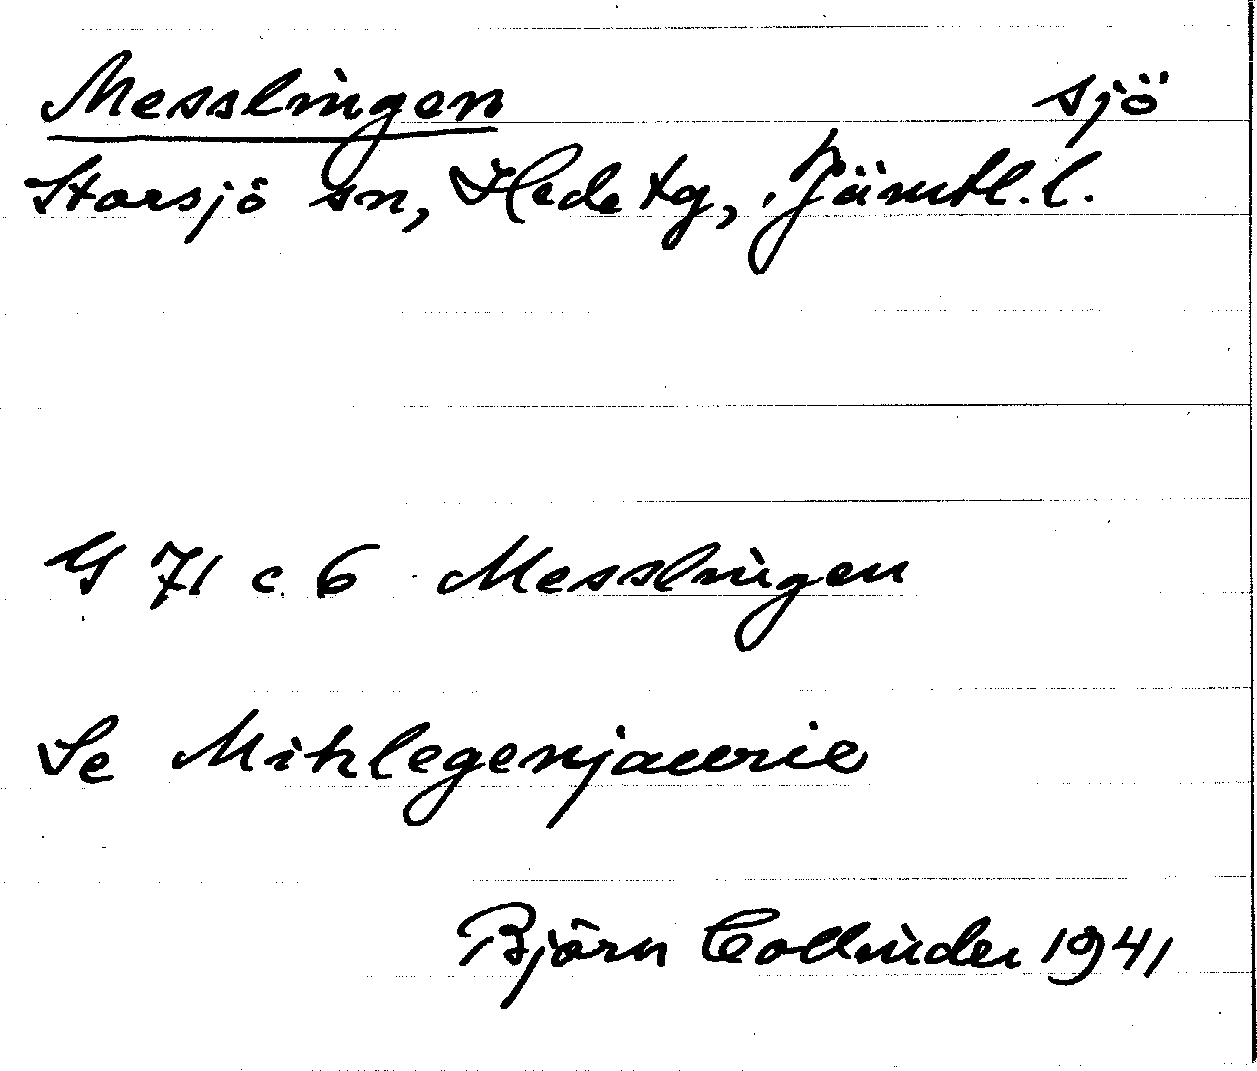 Messlingen sjö
Storsjö sn, Hede tg, Jämtl. l.
G 71 c 6 Messlingen
Se Mihlegenjaevrie
Björn Collinder 1941